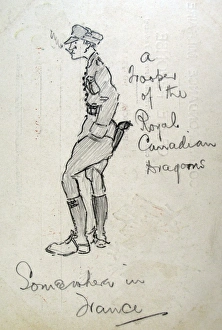 a
Trooper
of the
Royal
Canadian
Dragoons
Somewhere in
France